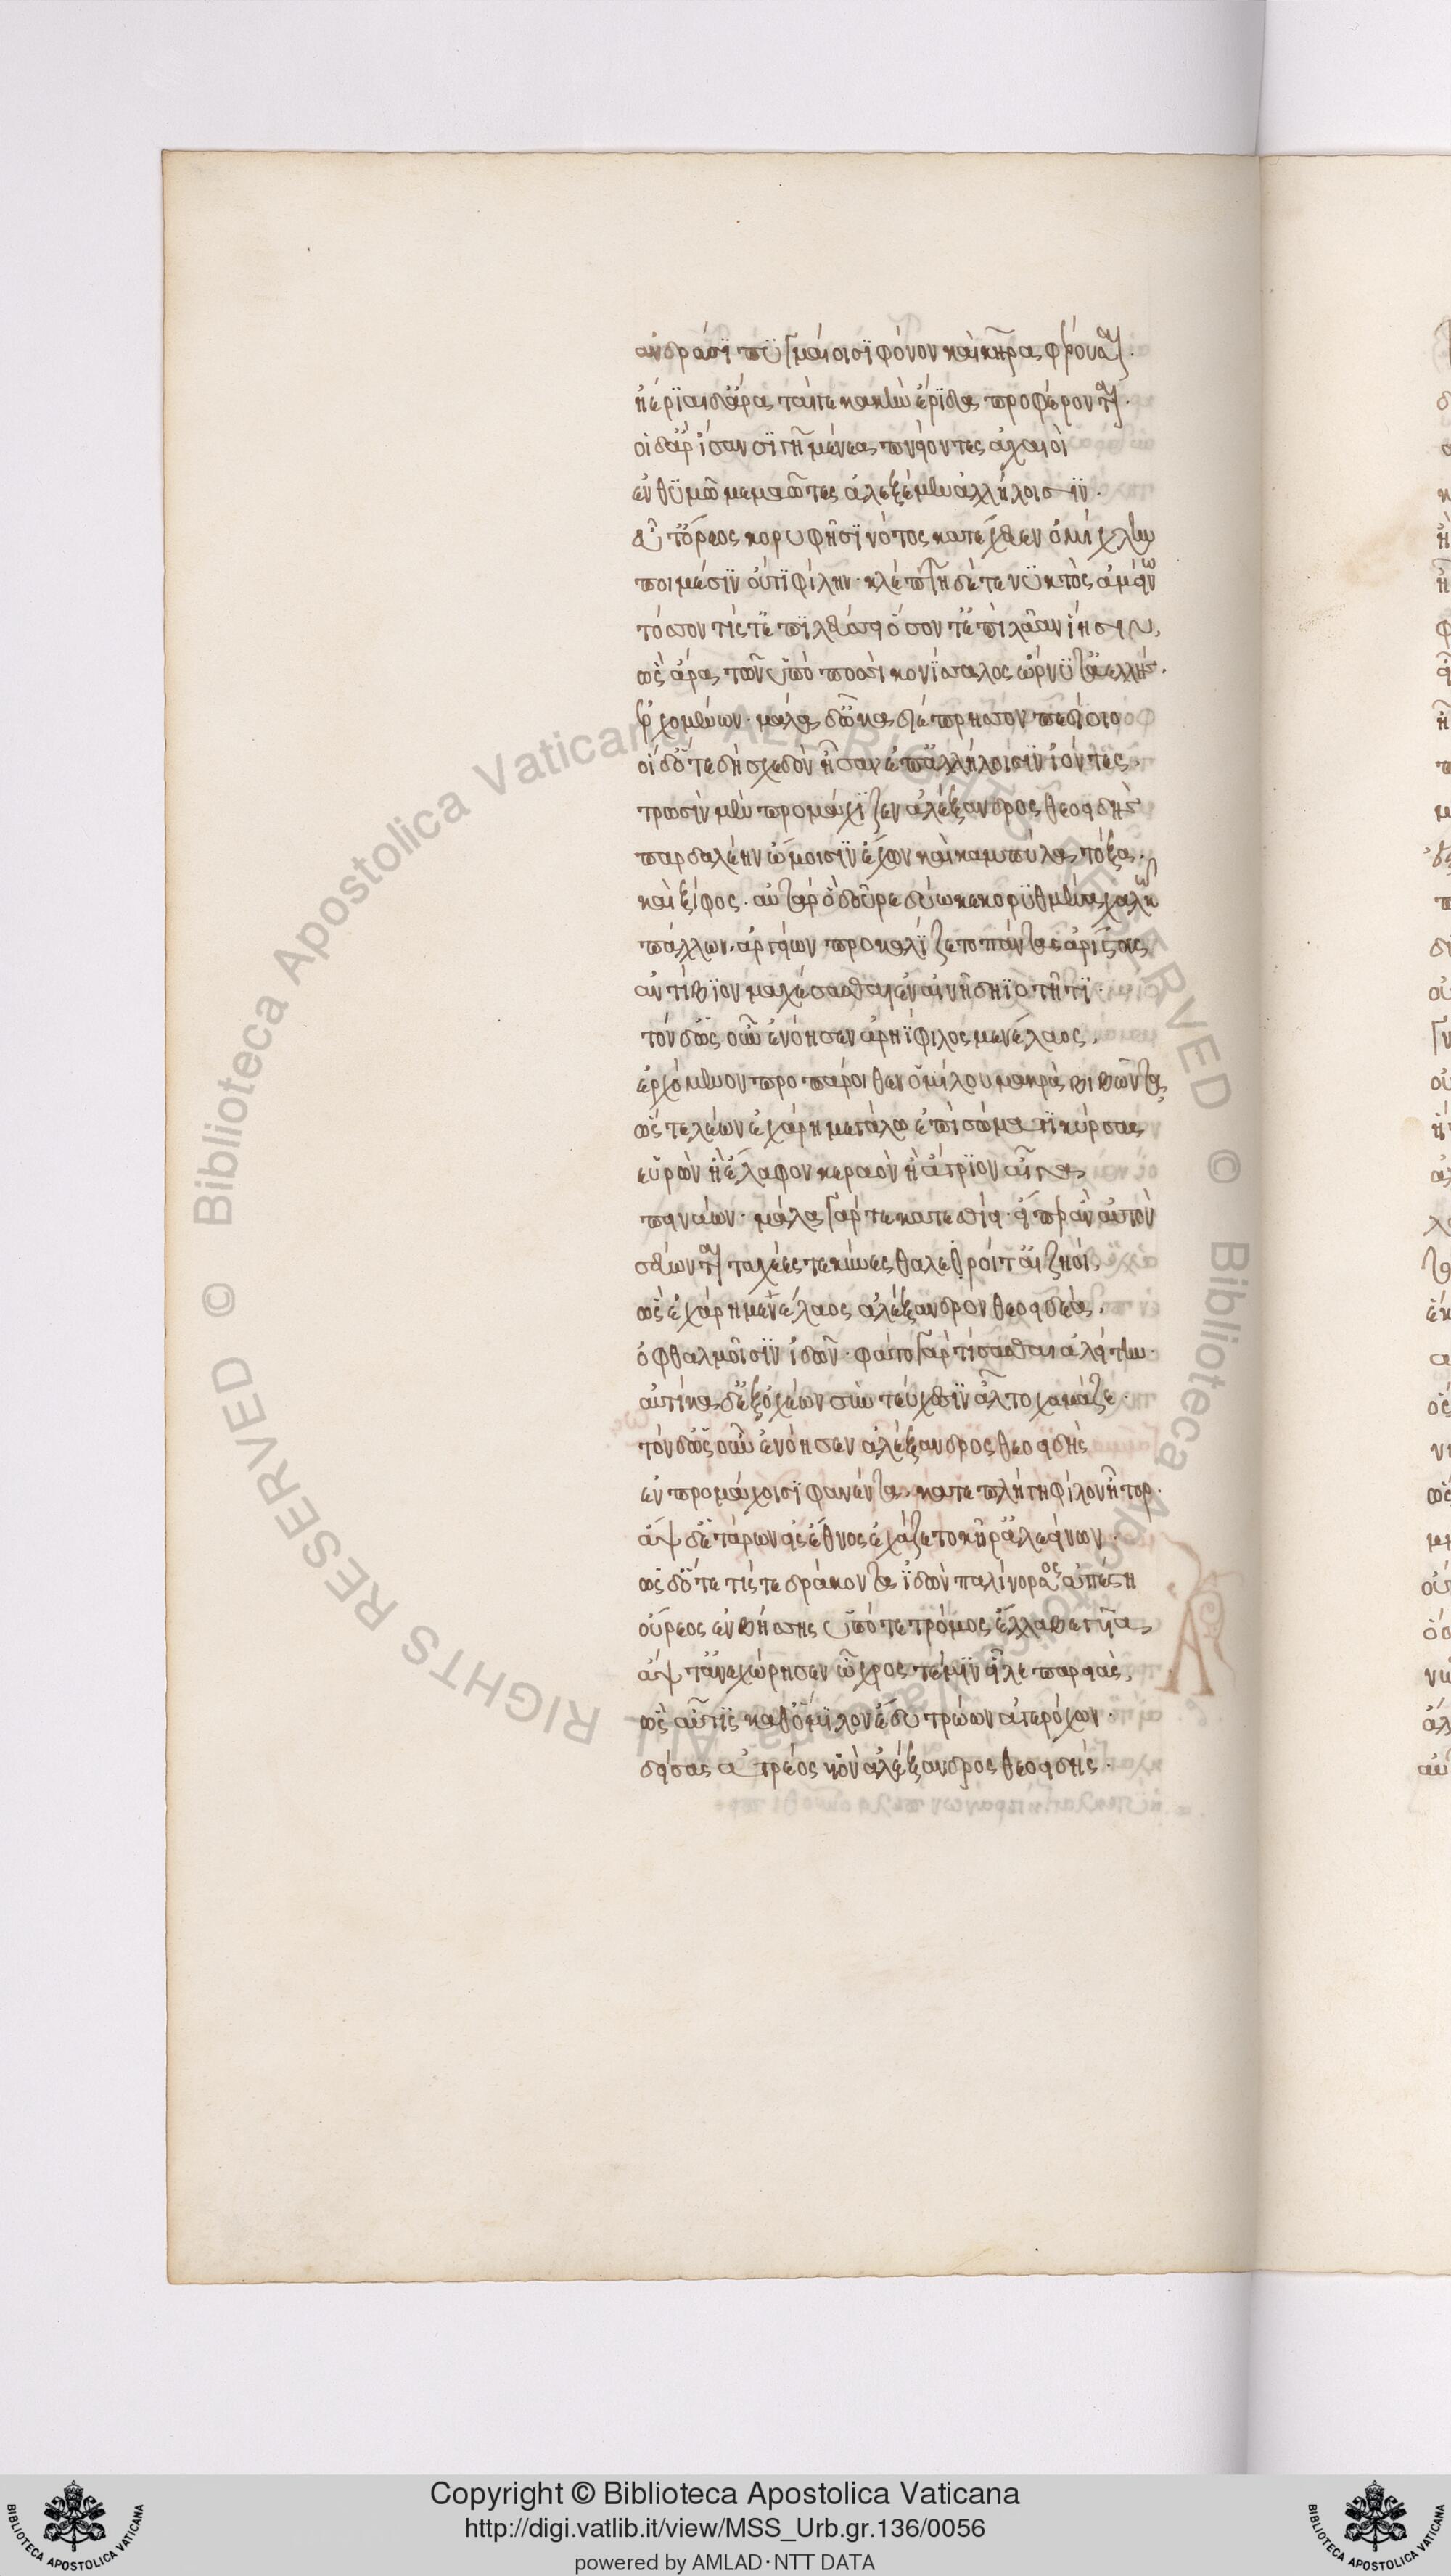 ἀνδράσϊ πϋγμαίοισϊ φόνον καὶ κῆρα φέρουσαι.
ἠέρϊαι δ᾽ ἄρα ταί τε κακὴν ἔρϊδα προφέρονται.
οἱ δ᾽ ἄρ ἴσαν σϊγῆ μένεα πνείοντες ἀχαιοὶ
ἐν θϋμῶ μεμαῶτες ἀλεξέμεν ἀλλήλοισϊν.
εὖτ᾽ ὄρεος κορυφῆσϊ νότος κατέχευεν ὀμίχλην
ποιμέσϊν οὔτϊ φίλην. κλέπτη δέ τε νϋκτὸς ἀμείνω
τόσσον τίς τ᾽ ἐπϊλεύσει ὅσον τ᾽ ἐπὶ λᾶαν ἵησιν,
ὣς ἄρα τῶν ὑπὸ ποσσὶ κονίσσαλος ὤρνϋτ᾽ ἀελλής.
ἐρχομένων. μάλα δ᾽ ὦκα διέπρησσον πεδίοιο
οἱ δ᾽ ὅτε δὴ σχεδὸν ἦσαν ἐπ᾽ ἀλλήλοισϊν ἰόντες,
τρωσὶν μὲν προμάχϊζεν ἀλέξανδρος θεοειδὴς
παρδαλέην ὤμοισϊν ἔχων καὶ καμπύλα τόξα.
καὶ ξίφος. αὐτὰρ ὃ δοῦρε δύω κεκορϋθμένα χαλκῶ
πάλλων. ἀργείων προκαλίζετο πάντας ἀρίστους
ἀντίβϊον μαχέσασθαι ἐν αἰνῆ δηϊοτῆτϊ.
τὸν δ᾽ ὡς οὖν ἐνόησεν ἀρηΐφιλος μενέλαος,
ἐρχόμενον προπάροιθεν ὁμίλου μακρὰ βιβῶντα
ὥς τε λέων ἐχάρη μεγάλω ἐπὶ σώματϊ κύρσας
εὑρὼν ἢ ἔλαφον κεραὸν ἢ ἄγρϊον αἶγα
πεινάων. μάλα γάρ τε κατεσθίει. εἴπερ ἂν αὐτὸν
σεύωνται ταχέες τε κύνες θαλεροί τ᾽ αἰζηοί,
ὣς ἐχάρη μενέλαος ἀλέξανδρον θεοειδέα,
ὀφθαλμοῖσϊν ἰδών. φάτο γὰρ τίσασθαι ἀλείτην.
αὐτίκα δ᾽ ἐξ ὀχέων σὺν τεύχεσϊν ἆλτο χαμάζε.
τὸν δ᾽ ὡς οὖν ἐνόησεν ἀλέξανδρος θεοειδὴς
ἐν προμάχοισϊ φανέντα. κατεπλήγη φίλον ἦτορ.
ἂψ δ᾽ ἑτάρων εἰς ἔθνος ἐχάζετο κῆρ᾽ ἀλεείνων.
ὡς δ᾽ ὅτε τίς τε δράκοντα ἰδὼν παλίνορσος ἀπέστη
οὔρεος ἐν βήσσης ὑπό τε τρόμος ἔλλαβε γυῖα,
ἂψ τ᾽ ἀνεχώρησεν ὦχρος τέ μϊν εἷλε παρειάς,
ὣς αὖτϊς καθ᾽ ὅμϊλον ἔδυ τρώων ἀγερώχων.
δείσας ἀτρέος υἱὸν ἀλέξανδρος θεοειδής.
Copyright © Biblioteca Apostolica Vaticana
http://digi.vatlib.it/view/MSS_Urb.gr.136/0056
powered by AMLAD·NTT DATA